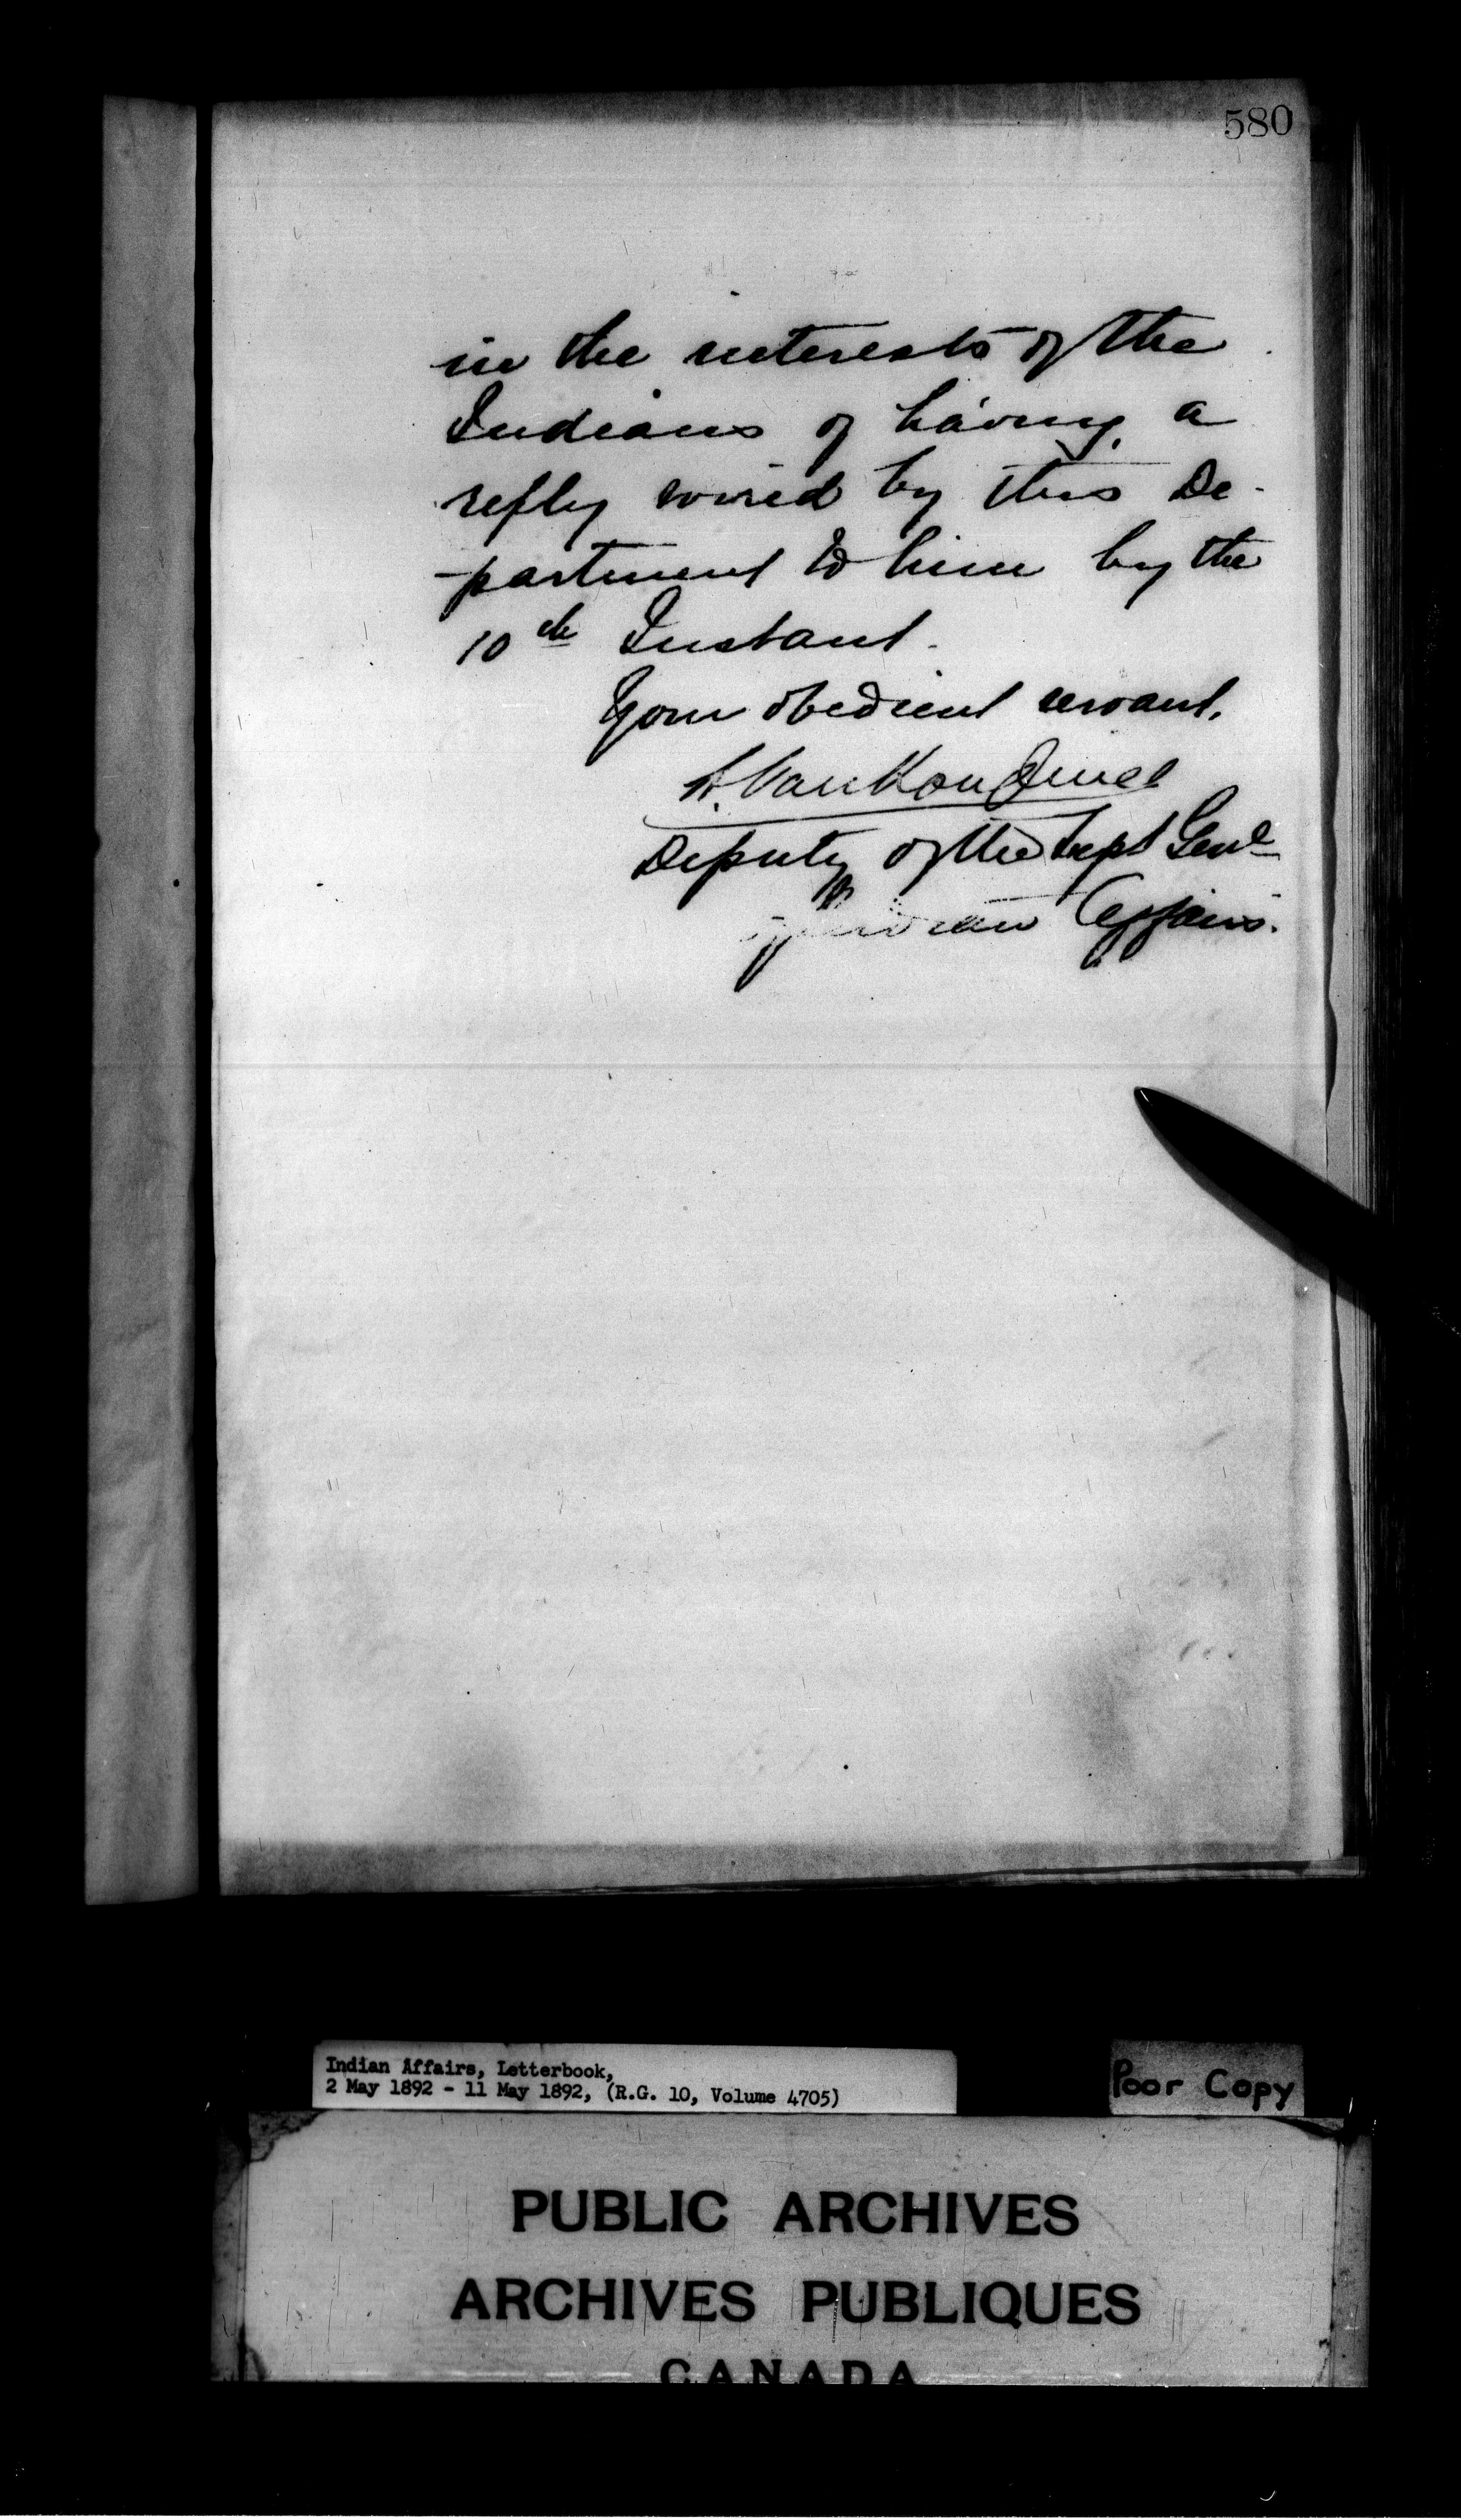 580
in the interests of the
Indians of having a
reply wired by this De-
-partment to him by the
10th Instant.
Your obedient servant,
L. Vankoughnet
Deputy of the Supt Genl
of Indian Affairs.
Indian Affairs, Letterbook,
2 May 1892 - 11 May 1892, (R.G. 10, Volume 4705)
Poor Copy
PUBLIC ARCHIVES
ARCHIVES PUBLIQUES
CANADA